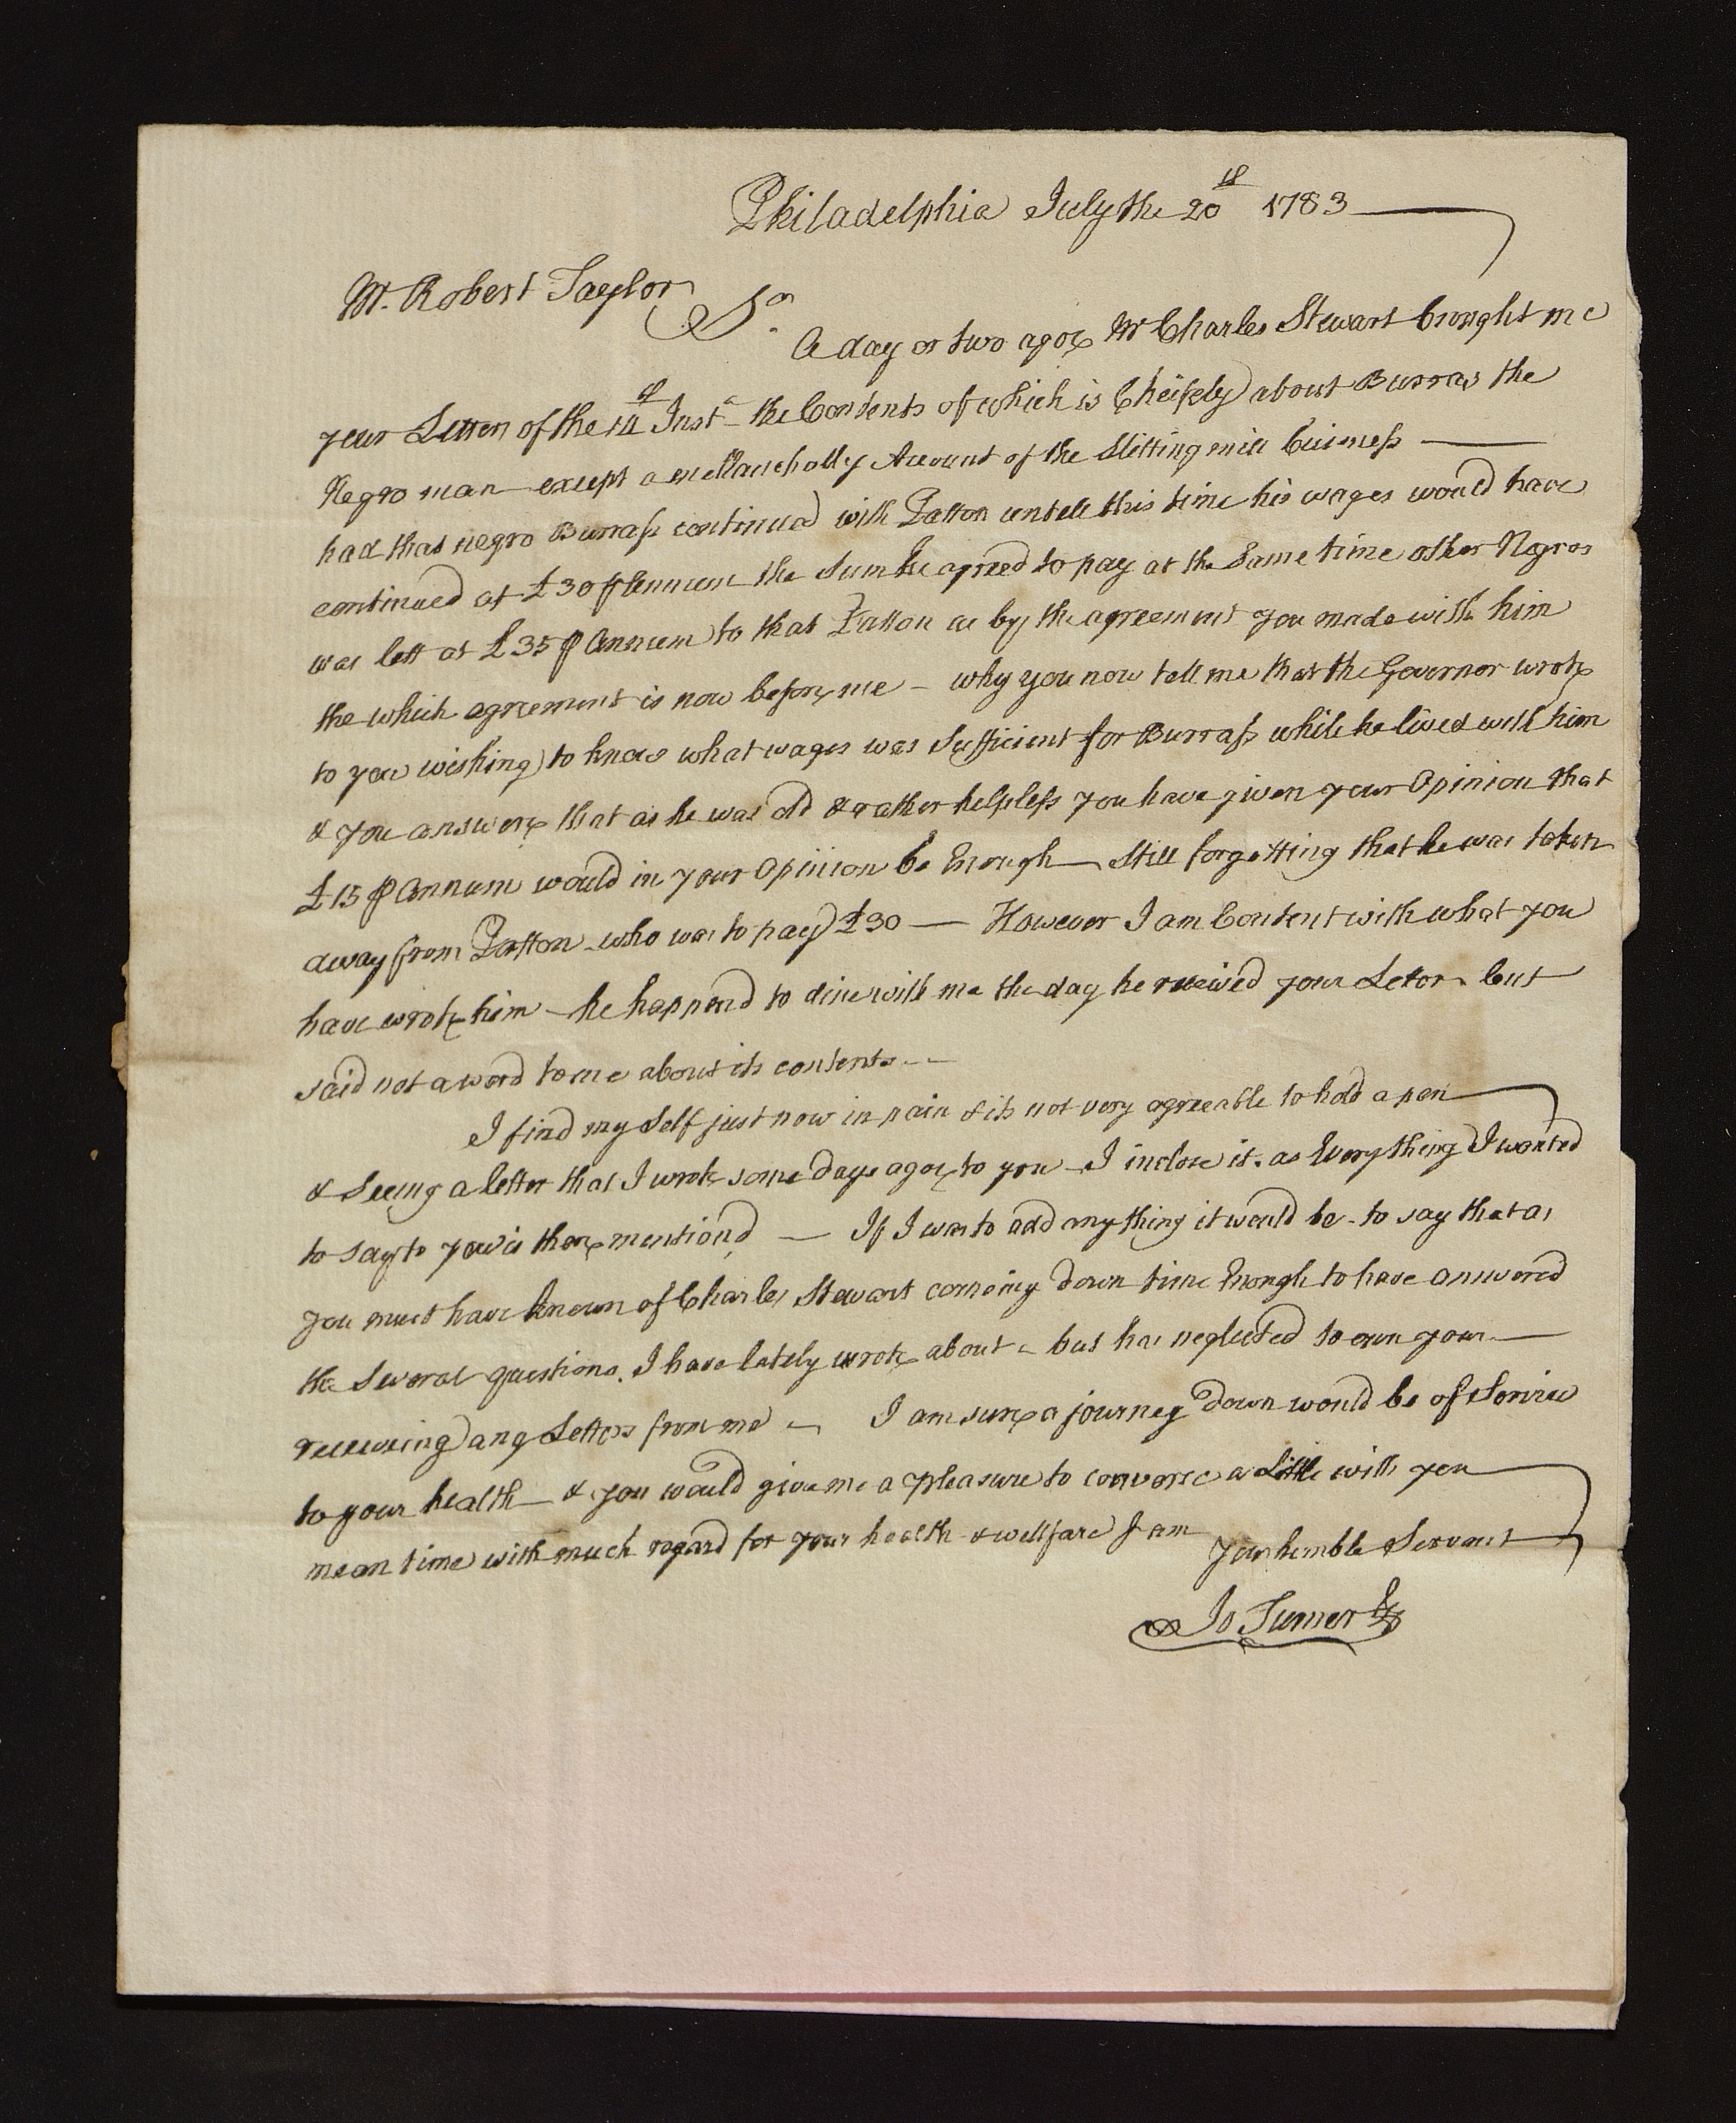 Philadelphia July the 20th 1783
Mr. Robert Taylor
Sr.
A day or two agoe Mr Charles Stewart brought me
your Letter of the 14th Inst. the Contents of which is Cheifely about Burras the
Negro man except a mellancholly Account of the Slitting mill buisness
had that negro Burrass continued with Patton untill this time his wages would have
continued at £30 ⅌ Annum the Sum he agreed to pay at the Same time other Negros
was lett at £35 ⅌ Annum to that Patton as by the agreement you made with him
the which agreement is now before me – why you now tell me that the Governor wrote
to you wishing to know what wages was Sufficient for Burrass while he lived with him
& you answere that as he was old & rather helpless you have given your Opinion that
£15 ⅌ Annum would in your Opinion be Enough – Still forgetting that he was taken
away from Patton – who was to pay £30 — However I am Content with what you
have wrote him – he happend to dine with me the day he received your Letter but
said not a word to me about its contents --
I find my Self just now in pain & its not very agreeable to hold a pen
& Seeing a letter that I wrote some days agoe to you – I inclose it. as Every thing I wanted
to say to you is there mentiond — If I was to add any thing it would be – to say that as
you must have known of Charles Stewart comeing down time Enough to have answered
the Several questions. I have lately wrote about – but has neglected to own your
receiveing any Letters from me – I am sure a journey down would be of Service
to your health – & you would give me a pleasure to converse a Little with you
mean time with much regard for your health & wellfare I am
your humble Servant
Jo Turner